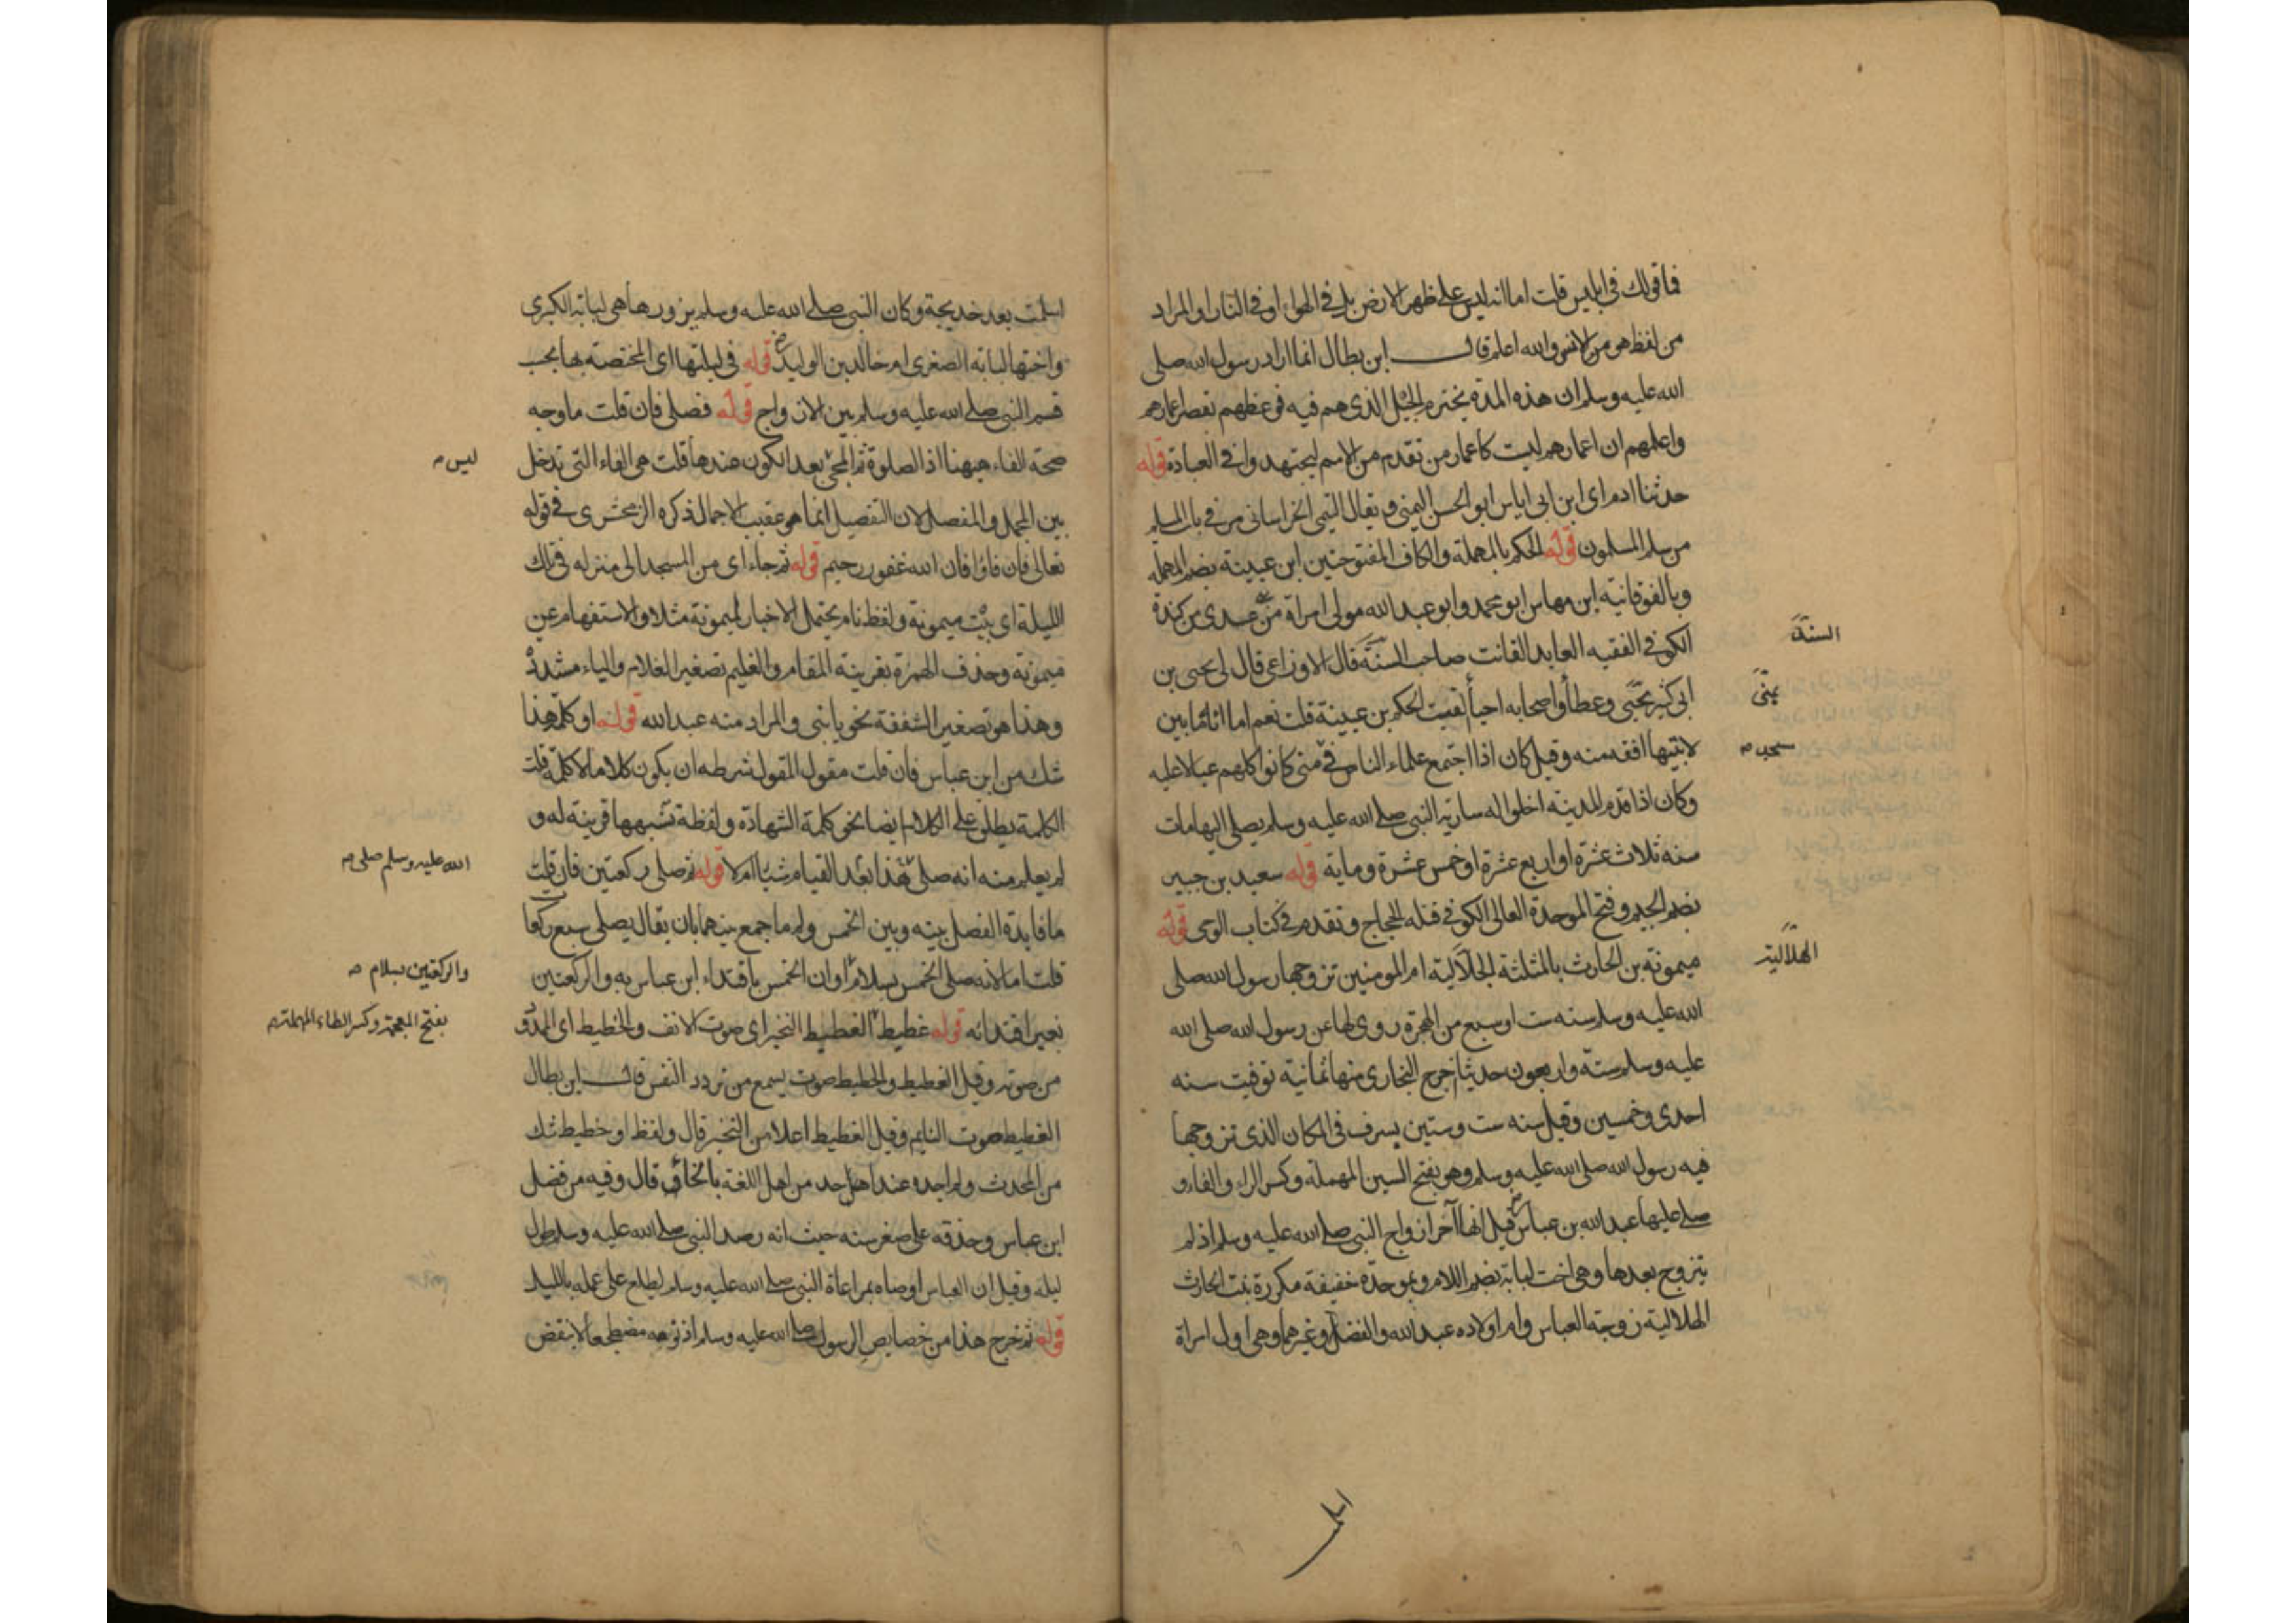 فما قولك في ابليس قلت اما انه ليس على ظهر الارض بل في الهواء او في النار او المراد
من لفظ هو من الانس والله اعلم قال ابن بطال انما اراد رسول الله صلى
الله عليه وسلم ان هذه المدة يخترم الجيل الذي هم فيه فوعظهم بقصر اعمارهم
واعلمهم ان اعمارهم ليست كاعمار من تقدم من الامم ليجتهدوا في العبادة قوله
حدثنا ادم اى ابن ابى اياس ابو الحسن اليمنى ويقال التيمى الخراسانى مر في باب المسلم
من سلم المسلمون قوله الحكم بالمهملة والكاف المفتوحتين ابن عيينة بضم المهملة
وبالفوقانية ابن نهاس ابو محمد وابو عبد الله مولى امراة من عدى من كندة
الكوفى الفقيه العابد القانت صاحب السنة قال الاوزاعى قال لى يحيى بن
السنة
ابى كثير بمنى وعطا واصحابه احيا لقيت الحكم بن عيينة قلت نعم اما انه ما بين
بمنى
لابتيها افقه منه وقيل كان اذا اجتمع علماء الناس في منى كانوا كلهم عيالا عليه
مسجد
وكان اذا قدم المدينة اخلوا له سارية النبى صلى الله عليه وسلم يصلى اليها مات
سنه ثلاث عشرة او اربع عشرة او خمس عشرة وماية قوله سعيد بن جبير
بضم الجيم وفتح الموحدة الكوفى قتله الحجاج وتقدم في كتاب الوحى قوله
ميمونة بن الحارث بالمثلثة الهلالية ام المومنين تزوجها رسول الله صلى
الهلالية
الله عليه وسلم سنه ست او سبع من الهجرة روى لها عن رسول الله صلى الله
عليه وسلم ستة واربعون حديثا خرج البخارى منها ثمانية توفيت سنه
احدى وخمسين وقيل سنه ست وستين بسرف في المكان الذى تزوجها
فيه رسول الله صلى الله عليه وسلم وهو بفتح السين المهملة وكسر الراء والفاء و
صلى عليها عبد الله بن عباس قيل انها آخر ازواج النبى صلى الله عليه وسلم اذ لم
يتزوج بعدها وهى اخت لبابة بضم اللام وبموحدة خفيفة مكررة بنت الحارث
الهلالية زوجة العباس وام اولاده عبد الله والفضل وغيرهما وهى اول امراة
اسلمت
اسلمت بعد خديجة وكان النبى صلى الله عليه وسلم يزورها هى لبابة الكبرى
واختها لبابة الصغرى ام خالد بن الوليد قوله في ليلتها اى المختصة بها بحسب
قسم النبى صلى الله عليه وسلم بين الازواج قوله فصلى فان قلت ما وجه
صحة الفاء ههنا اذ الصلوة ثم المجئ بعد الكون عندها قلت هى الفاء التى تدخل
ليس
بين المجمل والمفصل لان التفصيل انما هو عقيب الاجمال ذكره الزمخشرى في قوله
تعالى فان فاؤا فان الله غفور رحيم قوله ثم جاء اى من المسجد الى منزله في تلك
الليلة اى بيت ميمونة ولفظ نام يحتمل الاخبار لميمونة مثلا والاستفهام عن
ميمونة وحذف الهمزة بقرينة المقام والغليم تصغير الغلام والياء مشددة
وهذا هو تصغير الشفقة نحو يا بنى والمراد منه عبد الله قوله او كلمة هذا
شك من ابن عباس فان قلت مقول المقول شرطه ان يكون كلاما لا كلمة قلت
الكلمة يطلق على الكلام ايضا نحو كلمة الشهادة ولفظة تشبهها قرينة له و
لم يعلم منه انه صلى هذا بعد القيام شيا ام لا قوله ثم صلى ركعتين فان قلت
الله عليه وسلم صلى
ما فايدة الفصل بينه وبين الخمس ولم ما جمع بينهما بان يقال يصلى سبع ركعا
قلت اما لانه صلى الخمس بسلام او ان الخمس باقتداء ابن عباس به والركعتين
والركعتين بسلام
بغير اقتدائه قوله غطيط الغطيط النخير اى صوت الانف والخطيط اى الممدود
بفتح المعجمة وكسر الطاء المهملة
من صوته وقيل الغطيط والخطيط صوت يسمع من تردد النفس قال ابن بطال
الغطيط صوت النايم وقيل الغطيط اعلا من النخير قال ولفظ او خطيط شك
من المحدث ولم اجده عند احد من اهل اللغة بالخاء قال وفيه من فضل
ابن عباس وحذقه على صغر سنه حيث انه رصد النبى صلى الله عليه وسلم طول
ليله وقيل ان العباس اوصاه بمراعاة النبى صلى الله عليه وسلم ليطلع على عمله بالليل
قوله ثم خرج هذا من خصايص الرسول صلى الله عليه وسلم اذ نومه مضطجعا لا ينقض